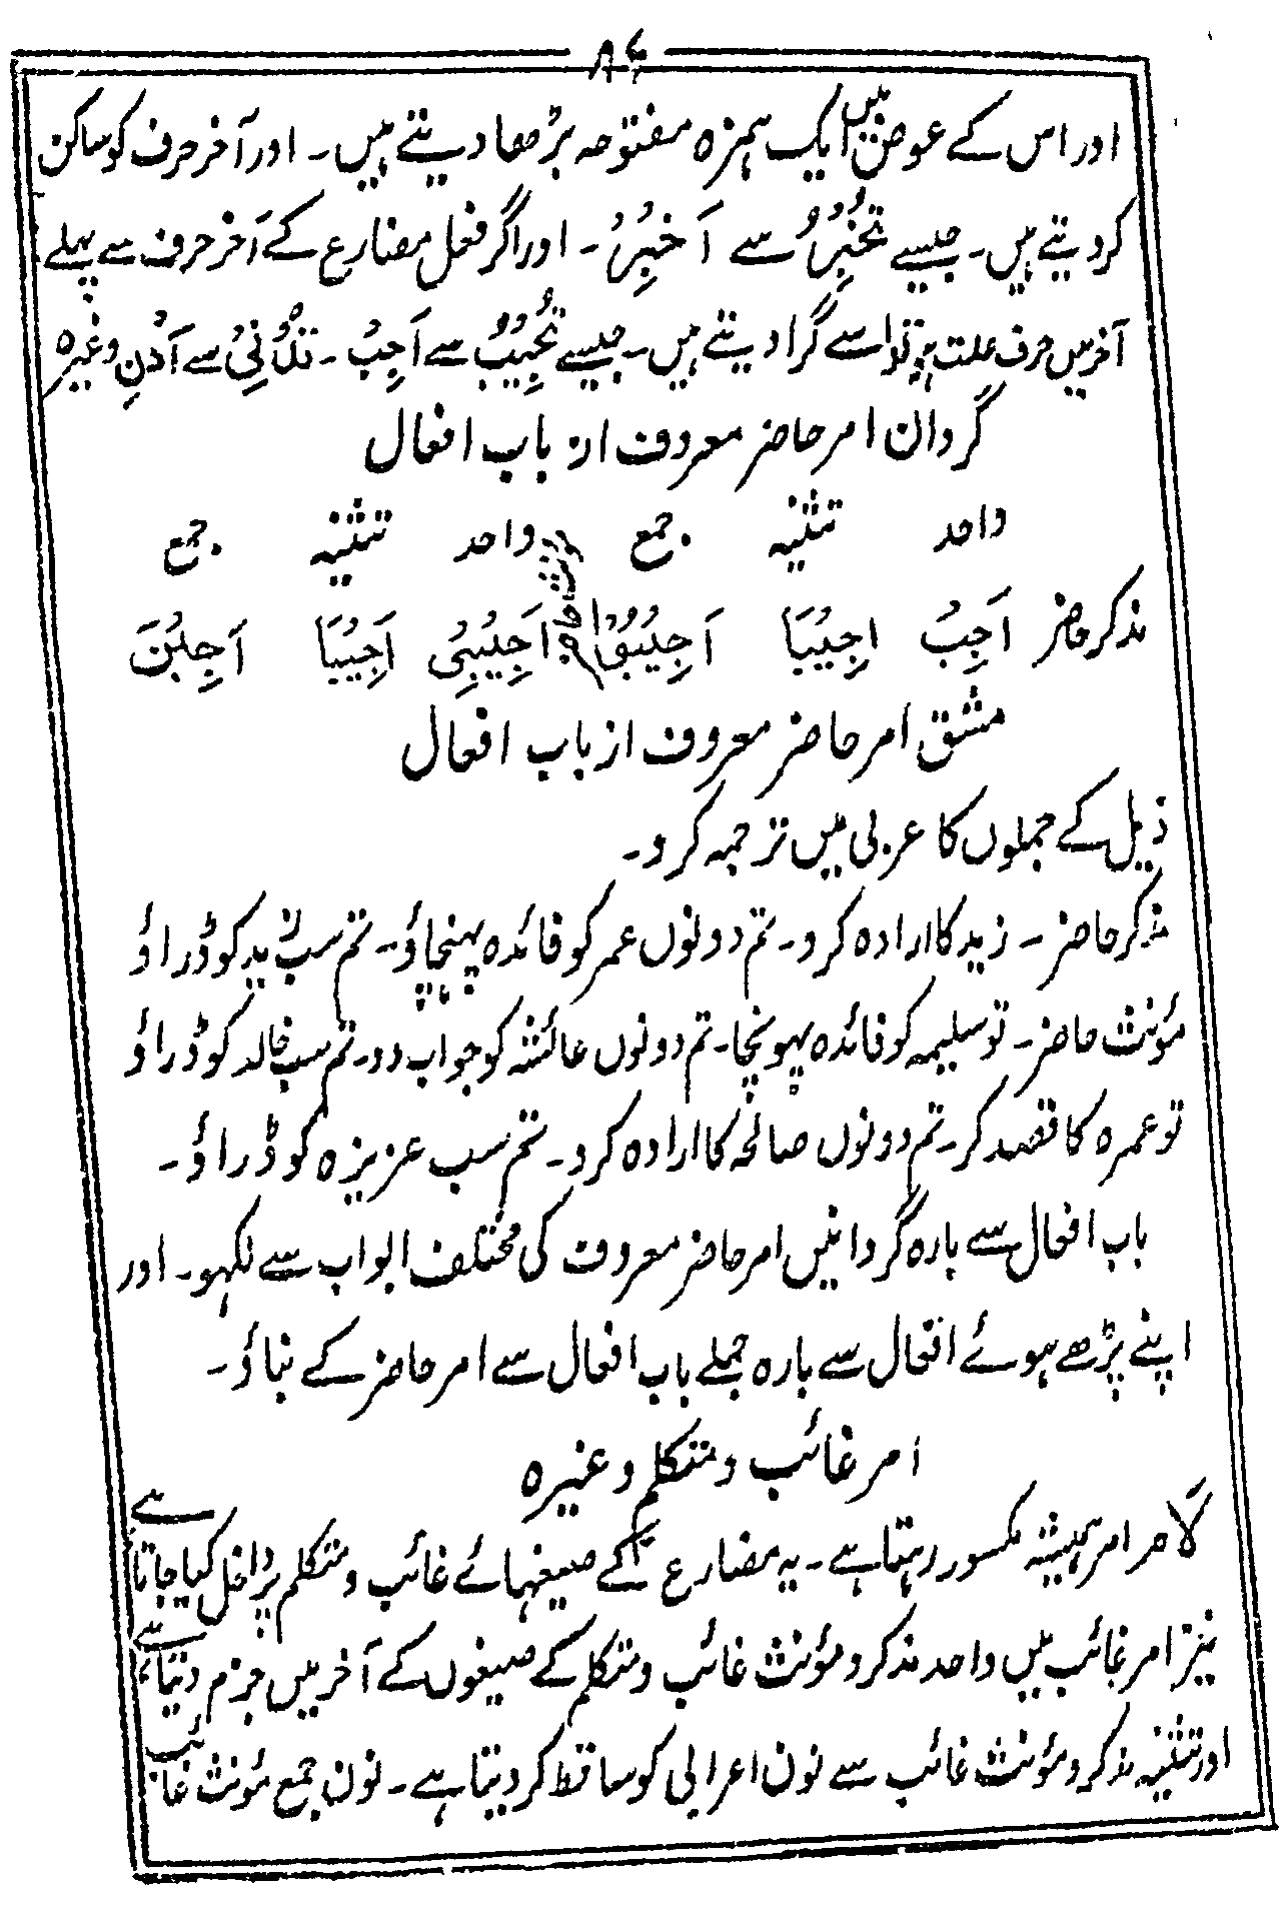 ۸۶
اور اس کے عوض میں ایک ہمزہ مفتوحہ بڑھا دیتے ہیں۔ اور آخر حرف کو ساکن
کر دیتے ہیں۔ جیسے تُخْبِرُ سے اَخْبِرْ۔ اور اگر فعل مضارع کے آخر حرف سے پہلے
آخر میں حرف علت ہو تو اسے گرا دیتے ہیں۔ جیسے تُجِیْبُ سے اَجِبْ۔ تُدْنِیْ سے اَدْنِ وغیرہ
گردان امر حاضر معروف از باب افعال
واحد تثنیہ جمع واحد تثنیہ جمع
مذکر حاضر اَجِبْ اَجِیْبَا اَجِیْبُوْا مؤنث حاضر اَجِیْبِیْ اَجِیْبَا اَجِبْنَ
مشق امر حاضر معروف از باب افعال
ذیل کے جملوں کا عربی میں ترجمہ کرو۔
مذکر حاضر۔ زید کا ارادہ کرو۔ تم دونوں عمر کو فائدہ پہنچاؤ۔ تم سب زید کو ڈراؤ
مؤنث حاضر۔ تو سلیمہ کو فائدہ پہونچا۔ تم دونوں عائشہ کو جواب دو۔ تم سب خالد کو ڈراؤ
تو عمرہ کا قصد کر۔ تم دونوں صالحہ کا ارادہ کرو۔ تم سب عزیزہ کو ڈراؤ۔
باب افعال سے بارہ گردانیں امر حاضر معروف کی مختلف ابواب سے لکھو۔ اور
اپنے پڑھے ہوئے افعال سے بارہ جملے باب افعال سے امر حاضر کے بناؤ۔
امر غائب و متکلم وغیرہ
لام امر ہمیشہ مکسور رہتا ہے۔ یہ مضارع کے صیغہائے غائب و متکلم پر داخل کیا جاتا ہے
نیز امر غائب میں واحد مذکر و مؤنث غائب و متکلم کے صیغوں کے آخر میں جزم دیتا ہے،
اور تثنیہ مذکر و مؤنث غائب سے نون اعرابی کو ساقط کر دیتا ہے۔ نون جمع مؤنث غائب